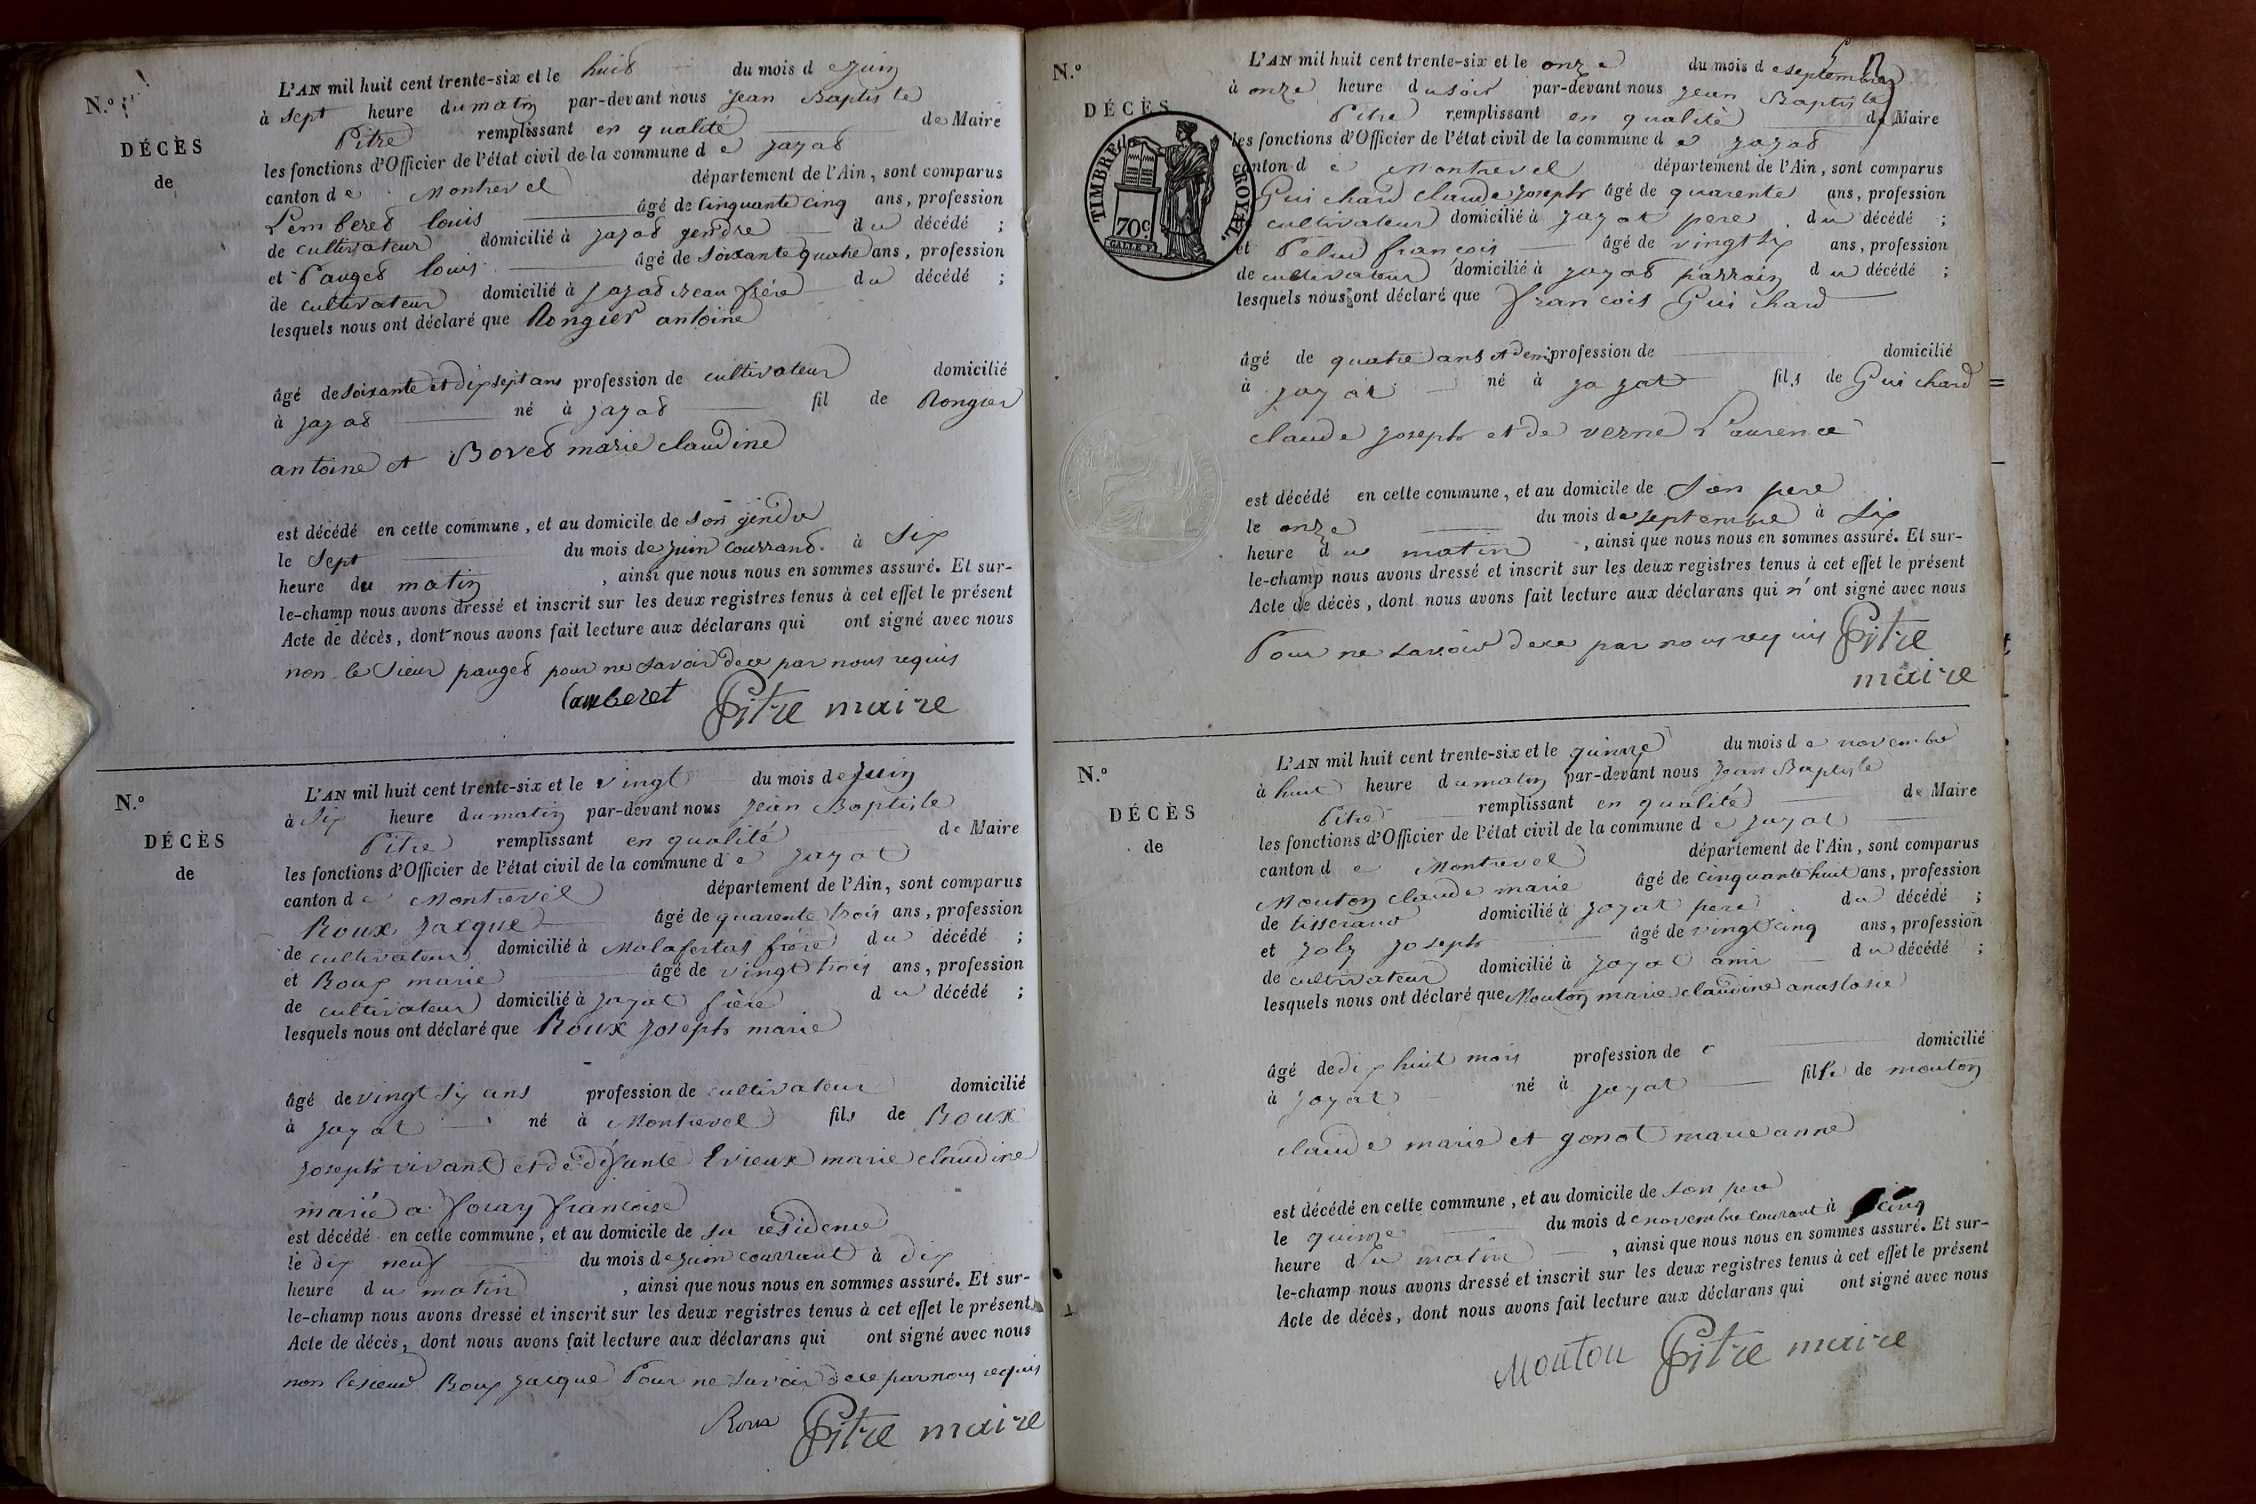 N.º
DÉCÈS
de
L'AN mil huit cent trente-six et le huit du mois de Juin
à sept heure du matin par-devant nous Jean Baptiste
Pitre remplissant en qualité de Maire
les fonctions d'Officier de l'état civil de la commune de jayat
canton de Montrevel département de l'Ain, sont comparus
Lemberet louis âgé de Cinquante cinq ans, profession
de cultivateur domicilié à jayat gendre du décédé ;
et Pauget louis âgé de Soixante quatre ans, profession
de cultivateur domicilié à jayat beau frére du décédé ;
lesquels nous ont déclaré que Rongier antoine
âgé de soixante et dix sept ans profession de cultivateur domicilié
à jayat né à jayat fil de Rongier
antoine et Bovet marie claudine
est décédé en cette commune, et au domicile de son gendre
le Sept du mois de juin courrant à Six
heure du matin, ainsi que nous nous en sommes assuré. Et sur-
le-champ nous avons dressé et inscrit sur les deux registres tenus à cet effet le présent
Acte de décès, dont nous avons fait lecture aux déclarans qui ont signé avec nous
non le Sieur pauget pour ne savoir de ce par nous requis
Lamberet Pitre maire
N.º
DÉCÈS
de
L'AN mil huit cent trente-six et le vingt du mois de Juin
à Six heure du matin par-devant nous Jean Baptiste
Pitre remplissant en qualité de Maire
les fonctions d'Officier de l'état civil de la commune de jayat
canton de Montrevel département de l'Ain, sont comparus
Roux Jacque âgé de quarente trois ans, profession
de cultivateur domicilié à Malafertat frère du décédé ;
et Roux marie âgé de vingt trois ans, profession
de cultivateur domicilié à jayat frère du décédé ;
lesquels nous ont déclaré que Roux joseph marie
âgé de vingt six ans profession de cultivateur domicilié
à jayat né à Montrevel fils de Roux
joseph vivant et de défunte Evieux marie claudine
marié a foray francoise
est décédé en cette commune, et au domicile de sa residence
le dix neuf du mois de juin courrant à dix
heure du matin, ainsi que nous nous en sommes assuré. Et sur-
le-champ nous avons dressé et inscrit sur les deux registres tenus à cet effet le présent
Acte de décès, dont nous avons fait lecture aux déclarans qui ont signé avec nous
non le sieur Roux jacque Pour ne savoir de ce par nous requis
Roux Pitre maire
N.º
DÉCÈS
TIMBRE ROYAL.
70c.
L'AN mil huit cent trente-six et le onze du mois de septembre
à onze heure du soir par-devant nous Jean Baptiste
Pitre remplissant en qualité de Maire
les fonctions d'Officier de l'état civil de la commune de jayat
canton de Montrevel département de l'Ain, sont comparus
Guichard claude joseph âgé de quarente ans, profession
cultivateur domicilié à jayat pere du décédé ;
et Pelud françois âgé de vingt six ans, profession
de cultivateur domicilié à jayat parrain du décédé ;
lesquels nous ont déclaré que francois Guichard
âgé de quatre ans et demi profession de domicilié
à jayat né à jayat fils de Guichard
claude joseph et de verne Laurence
est décédé en cette commune, et au domicile de son pere
le onze du mois de septembre à six
heure du matin, ainsi que nous nous en sommes assuré. Et sur-
le-champ nous avons dressé et inscrit sur les deux registres tenus à cet effet le présent
Acte de décès, dont nous avons fait lecture aux déclarans qui n'ont signé avec nous
Pour ne savoir de ce par nous requis Pitre
maire
N.º
DÉCÈS
de
L'AN mil huit cent trente-six et le quinze du mois de novembre
à huit heure du matin par-devant nous Jean Baptiste
Pitre remplissant en qualité de Maire
les fonctions d'Officier de l'état civil de la commune de jayat
canton de Montrevel département de l'Ain, sont comparus
Mouton claude marie âgé de cinquante huit ans, profession
de tisserand domicilié à jayat pere du décédé ;
et joly joseph âgé de vingt cinq ans, profession
de cultivateur domicilié à jayat ami du décédé ;
lesquels nous ont déclaré que Mouton marie claudine anastasie
âgé de dix huit mois profession de domicilié
à jayat né à jayat fille de mouton
claude marie et gonot marie anne
est décédé en cette commune, et au domicile de son pere
le quinze du mois de novembre courant à cinq
heure du matin, ainsi que nous nous en sommes assuré. Et sur-
le-champ nous avons dressé et inscrit sur les deux registres tenus à cet effet le présent
Acte de décès, dont nous avons fait lecture aux déclarans qui ont signé avec nous
Mouton Pitre maire